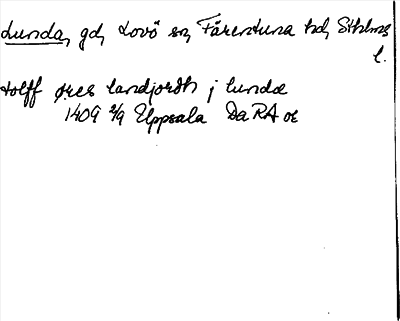 Lunda, gd, Lovö sn, Färentuna hd, Sthlms
l.
tolff øres landjordh j lunda
1409 2/9 Uppsala Da RA oc